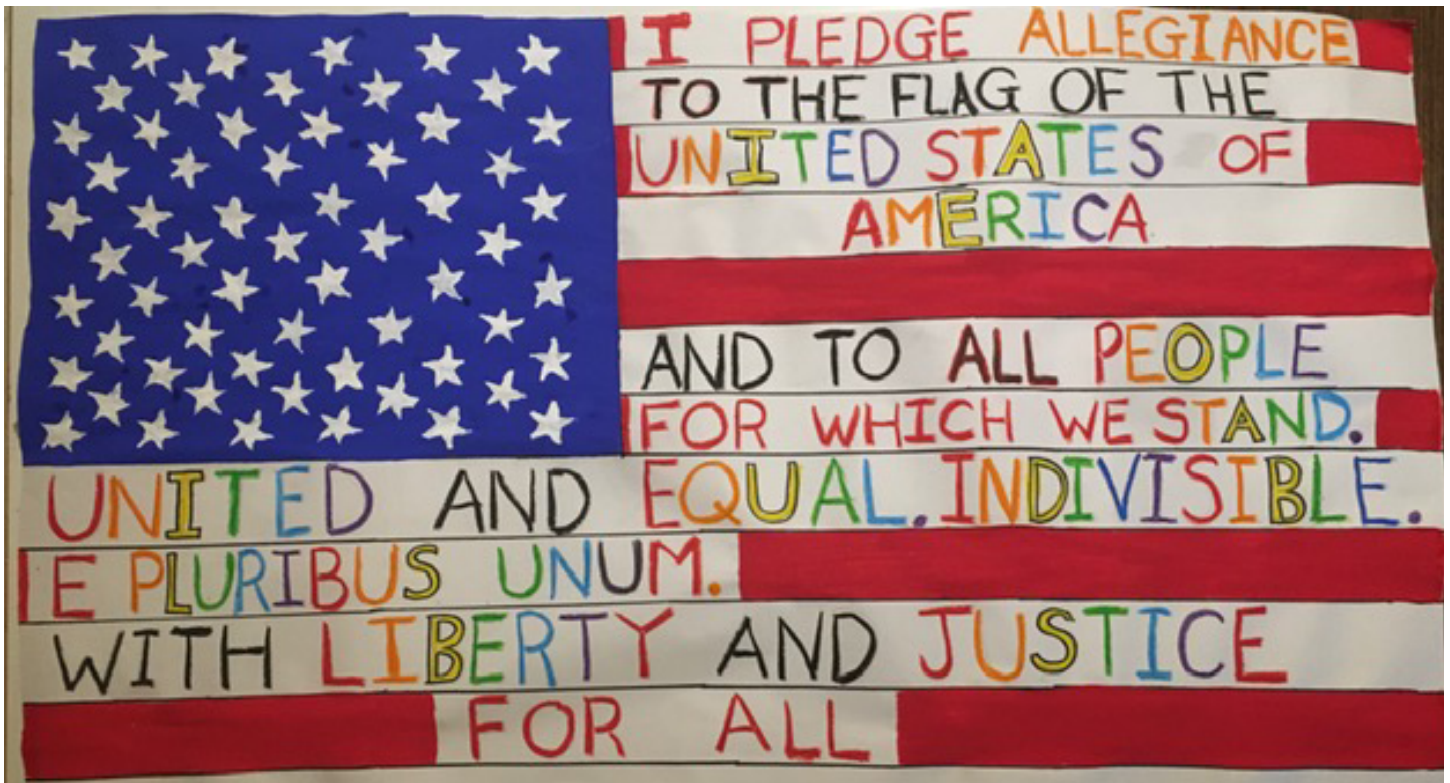 I PLEDGE ALLEGIANCE
TO THE FLAG OF THE
UNITED STATES OF
AMERICA
AND TO ALL PEOPLE
FOR WHICH WE STAND.
UNITED AND EQUAL. INDIVISIBLE.
E PLURIBUS UNUM.
WITH LIBERTY AND JUSTICE
FOR ALL